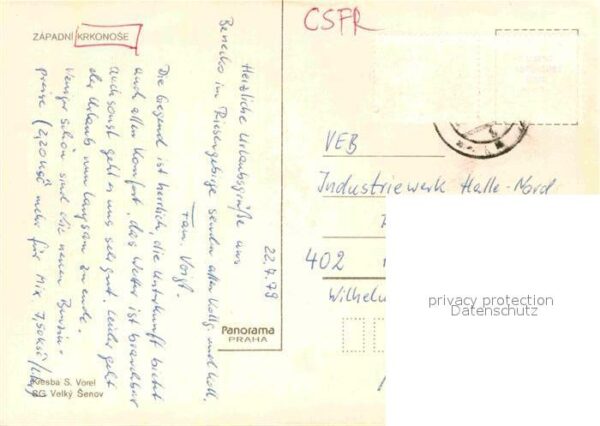 CSFR
ZÁPADNÍ KRKONOŠE
22.7.79
Herzliche Urlaubsgrüße aus
Benecko im Riesengebirge senden allen Kollg. und Koll.
Fam. Voigt.
Die Gegend ist herrlich, die Unterkunft bietet
auch allen Komfort, das Wetter ist brauchbar
auch sonst geht es uns sehr gut. Leider geht
der Urlaub nun langsam zu ende.
Weniger schön sind die neuen Benzin-
preise (220 Kčs mehr für Mix 7,50 Kčs/Liter)
VEB
Industriewerk Halle-Nord
402
Wilhelm
Panorama
PRAHA
Kresba S. Vorel
SG Velký Šenov
privacy protection
Datenschutz